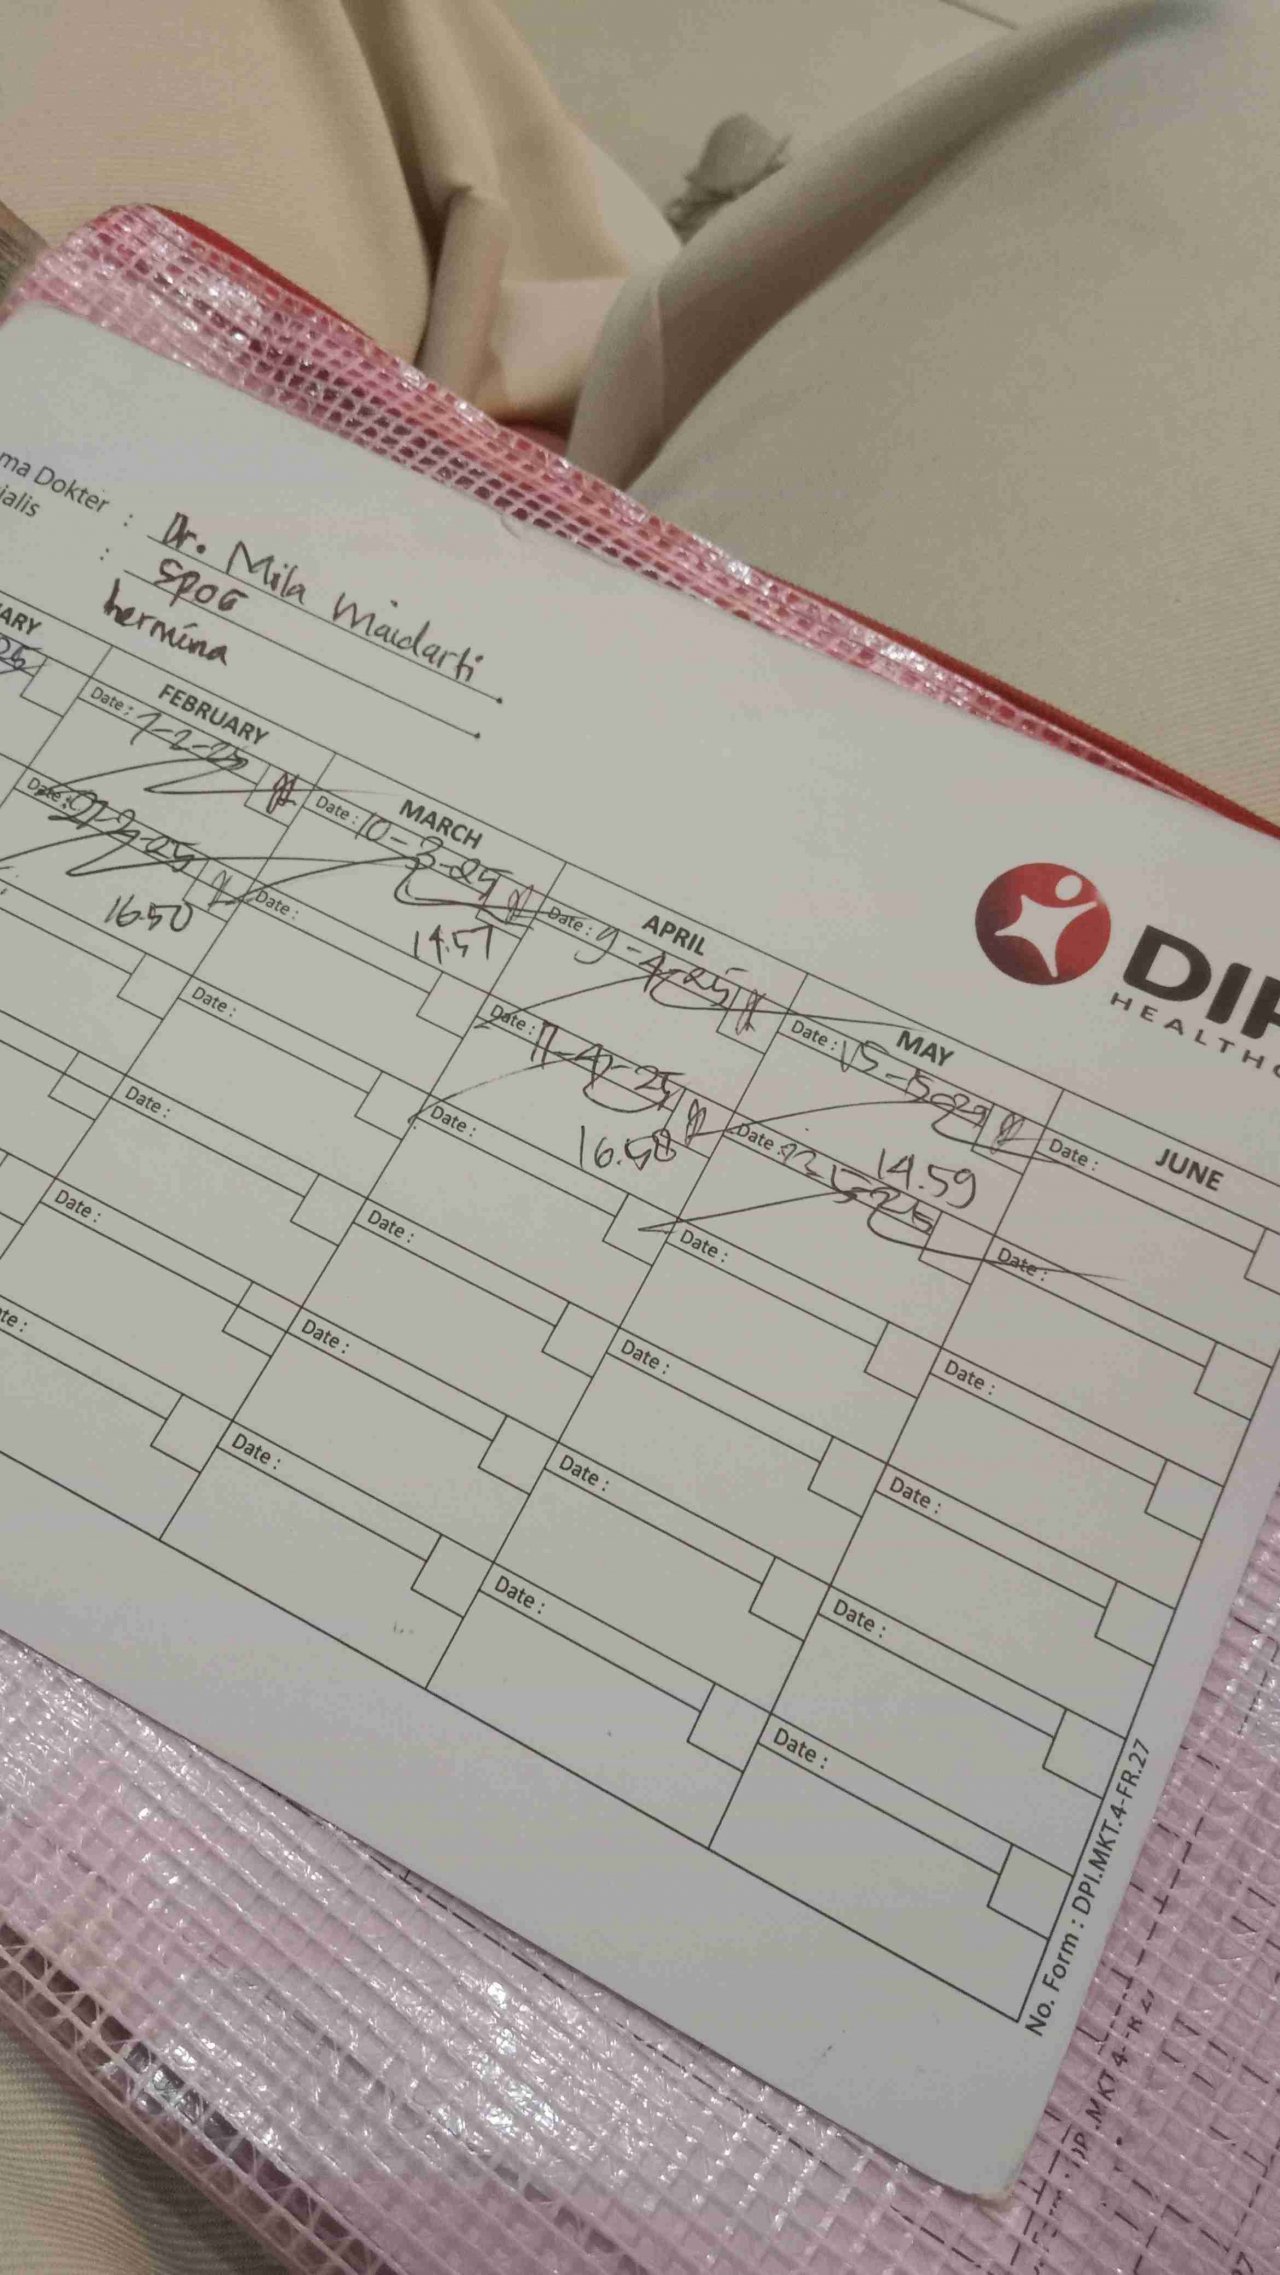 ma Dokter : Dr. Mila Maidarti
ialis : SPOG
hermina
DIP
HEALTHC
ARY
FEBRUARY
MARCH
APRIL
MAY
JUNE
25
Date : 7-2-25
Date : 10-3-25
14.57
Date : 9-4-25
Date : 15-5-25
14.59
Date :
Date :
16.50
Date :
Date : 17-4-25
16.58
Date : 22-5-25
Date :
Date :
Date :
Date :
Date :
Date :
Date :
Date :
Date :
Date :
te :
Date :
Date :
Date :
Date :
Date :
Date :
Date :
No. Form : DPI.MKT.4-FR.27